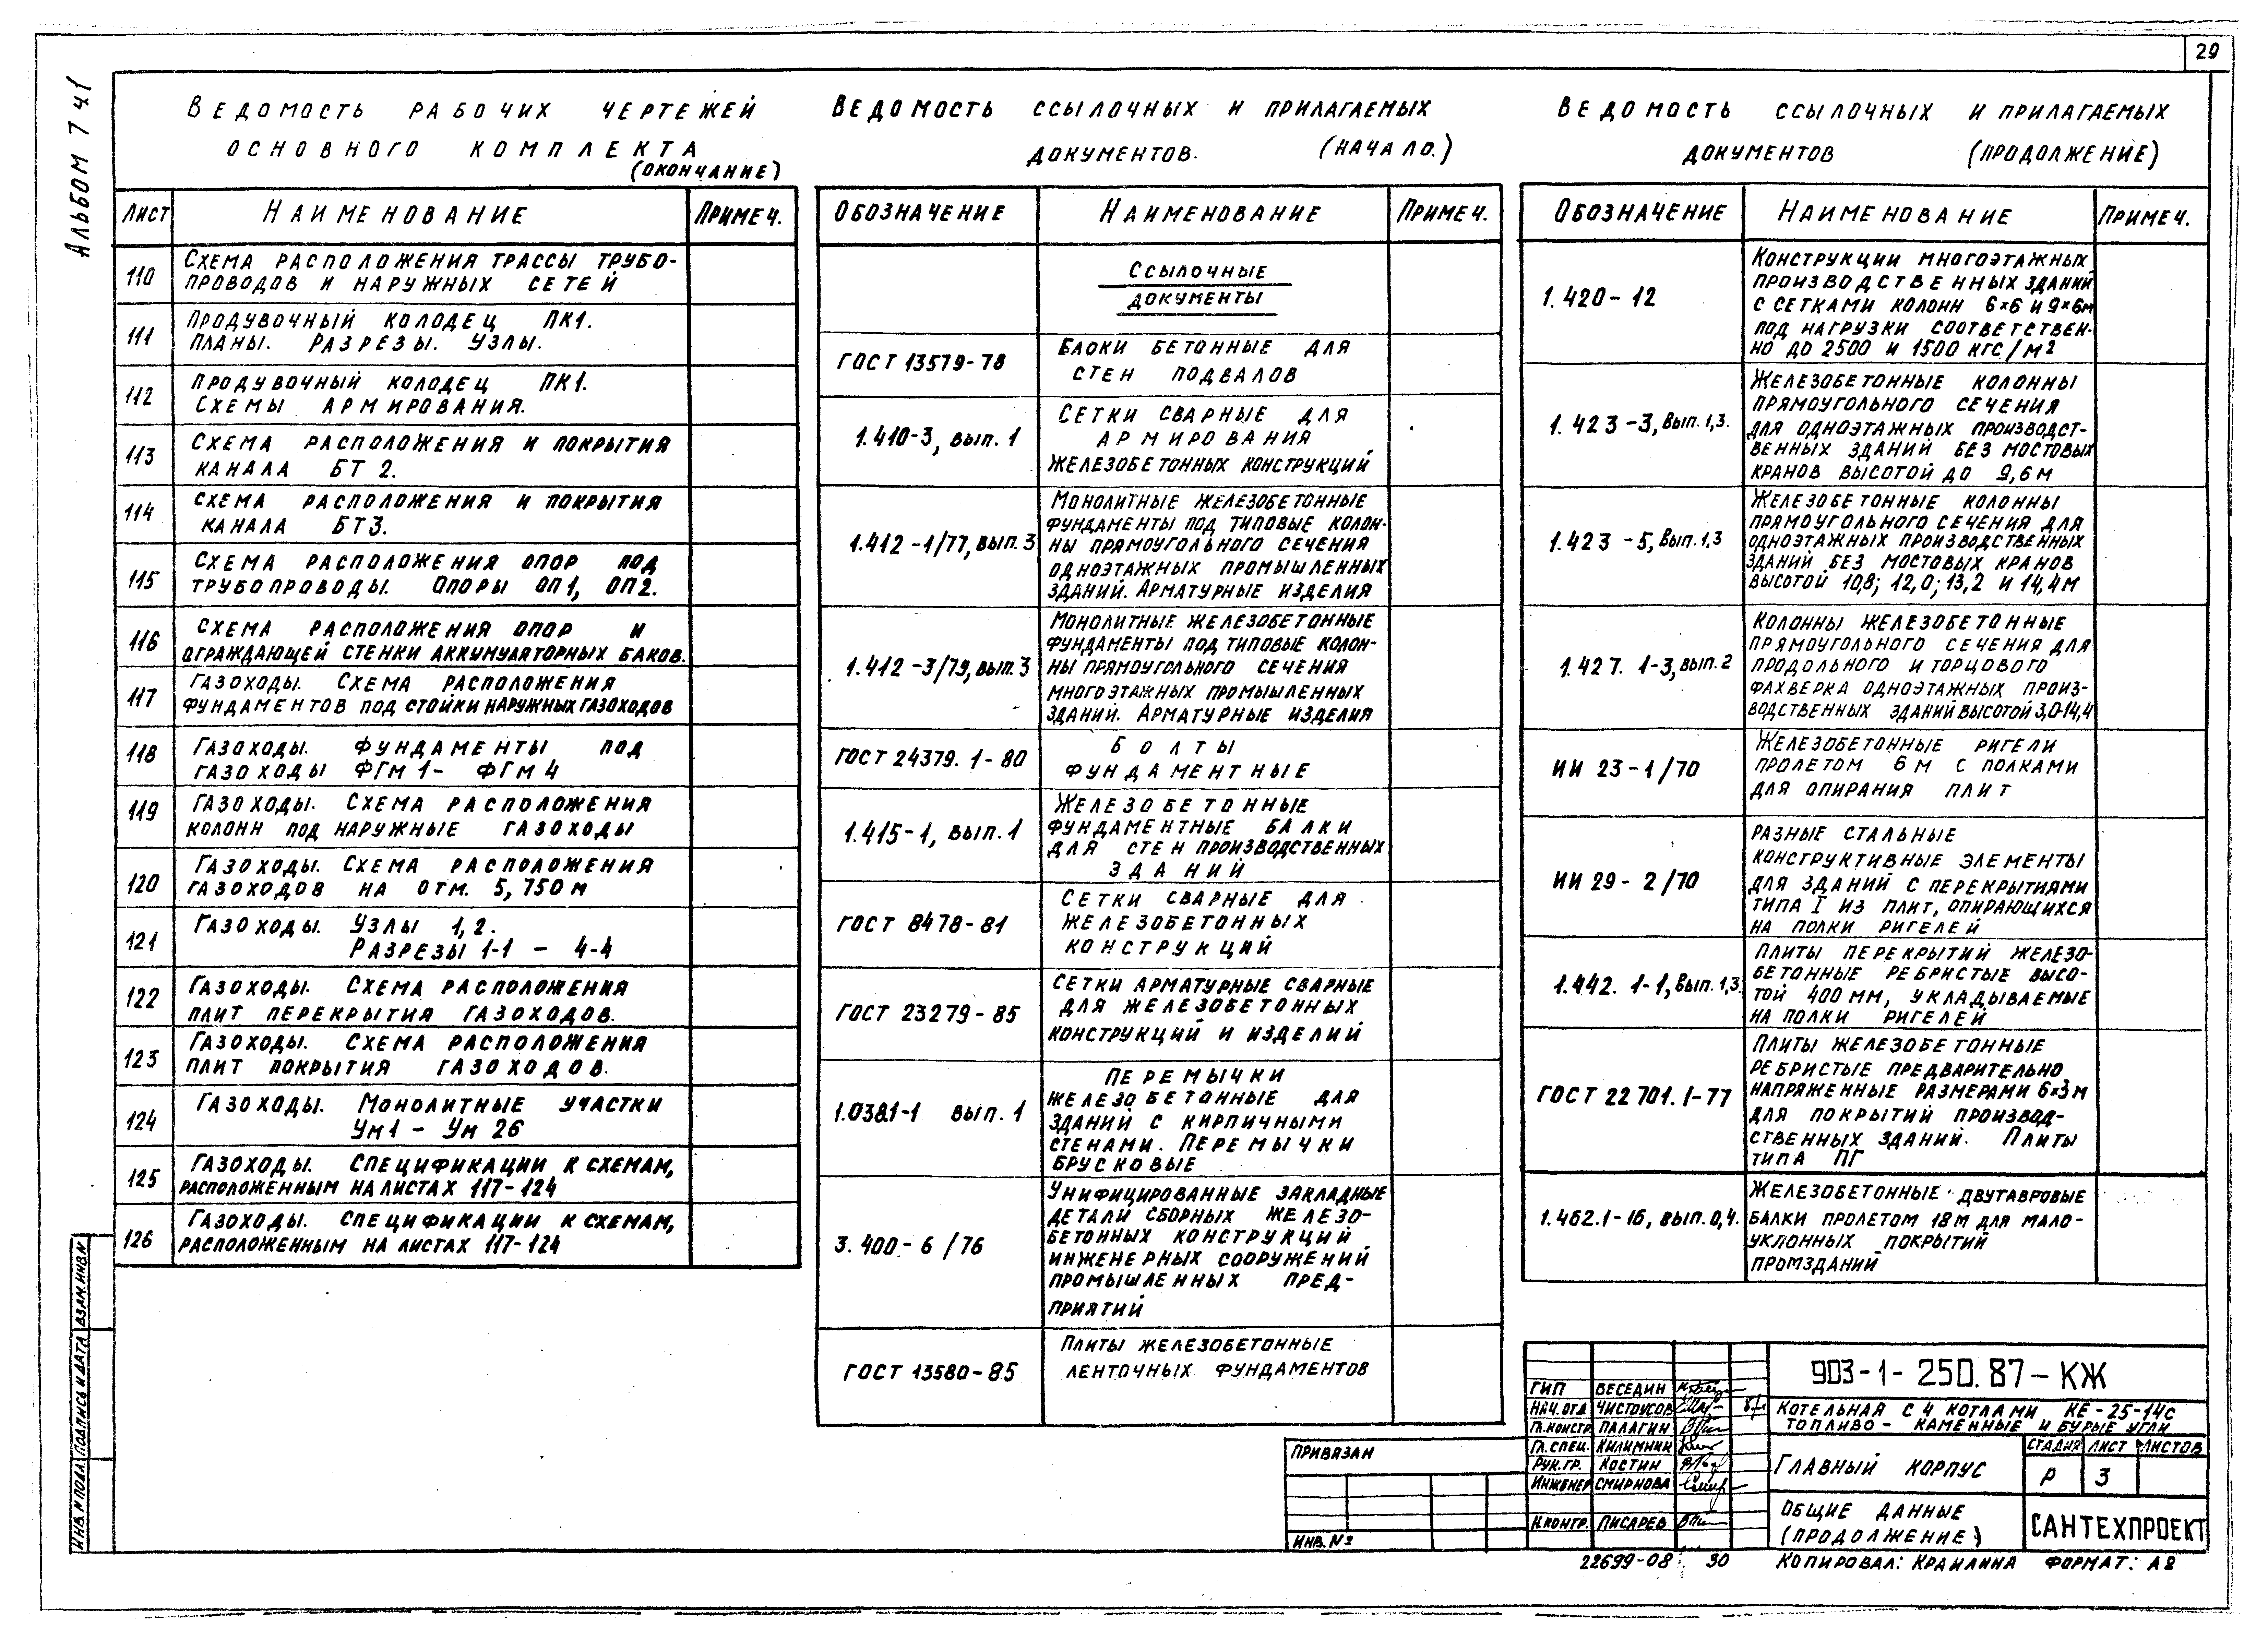 29
Альбом 7 ч1
Ведомость рабочих чертежей
основного комплекта
(окончание)
Лист Наименование Примеч.
110 Схема расположения трассы трубо-
проводов и наружных сетей
111 Продувочный колодец ПК1.
Планы. Разрезы. Узлы.
112 Продувочный колодец ПК1.
Схемы армирования.
113 Схема расположения и покрытия
канала БТ 2.
114 Схема расположения и покрытия
канала БТ3.
115 Схема расположения опор под
трубопроводы. Опоры ОП1, ОП2.
116 Схема расположения опор и
ограждающей стенки аккумуляторных баков.
117 Газоходы. Схема расположения
фундаментов под стойки наружных газоходов
118 Газоходы. Фундаменты под
газоходы ФГм 1- ФГм 4
119 Газоходы. Схема расположения
колонн под наружные газоходы
120 Газоходы. Схема расположения
газоходов на отм. 5,750 м
121 Газоходы. Узлы 1,2.
Разрезы 1-1 - 4-4
122 Газоходы. Схема расположения
плит перекрытия газоходов.
123 Газоходы. Схема расположения
плит покрытия газоходов.
124 Газоходы. Монолитные участки
Ум1 - Ум 26
125 Газоходы. Спецификации к схемам,
расположенным на листах 117-124
126 Газоходы. Спецификации к схемам,
расположенным на листах 117-124
Ведомость ссылочных и прилагаемых
документов. (начало.)
Обозначение Наименование Примеч.
Ссылочные
документы
ГОСТ 13579-78 Блоки бетонные для
стен подвалов
1.410-3, вып. 1 Сетки сварные для
армирования
железобетонных конструкций
1.412-1/77, вып. 3 Монолитные железобетонные
фундаменты под типовые колон-
ны прямоугольного сечения
одноэтажных промышленных
зданий. Арматурные изделия
1.412-3/79, вып. 3 Монолитные железобетонные
фундаменты под типовые колон-
ны прямоугольного сечения
многоэтажных промышленных
зданий. Арматурные изделия
ГОСТ 24379.1-80 Болты
фундаментные
1.415-1, вып. 1 Железобетонные
фундаментные балки
для стен производственных
зданий
ГОСТ 8478-81 Сетки сварные для
железобетонных
конструкций
ГОСТ 23279-85 Сетки арматурные сварные
для железобетонных
конструкций и изделий
1.038.1-1 вып. 1 Перемычки
железобетонные для
зданий с кирпичными
стенами. Перемычки
брусковые
3.400-6/76 Унифицированные закладные
детали сборных железо-
бетонных конструкций
инженерных сооружений
промышленных пред-
приятий
ГОСТ 13580-85 Плиты железобетонные
ленточных фундаментов
Ведомость ссылочных и прилагаемых
документов (продолжение)
Обозначение Наименование Примеч.
1.420-12 Конструкции многоэтажных
производственных зданий
с сетками колонн 6×6 и 9×6м
под нагрузки соответствен-
но до 2500 и 1500 кгс/м2
1.423-3, вып. 1,3. Железобетонные колонны
прямоугольного сечения
для одноэтажных производст-
венных зданий без мостовых
кранов высотой до 9,6 м
1.423-5, вып. 1,3 Железобетонные колонны
прямоугольного сечения для
одноэтажных производственных
зданий без мостовых кранов
высотой 10,8; 12,0; 13,2 и 14,4м
1.427.1-3, вып. 2 Колонны железобетонные
прямоугольного сечения для
продольного и торцового
фахверка одноэтажных произ-
водственных зданий высотой 3,0-14,4
ИИ 23-1/70 Железобетонные ригели
пролетом 6 м с полками
для опирания плит
ИИ 29-2/70 Разные стальные
конструктивные элементы
для зданий с перекрытиями
типа I из плит, опирающихся
на полки ригелей
1.442.1-1, вып. 1,3. Плиты перекрытий железо-
бетонные ребристые высо-
той 400 мм, укладываемые
на полки ригелей
ГОСТ 22701.1-77 Плиты железобетонные
ребристые предварительно
напряженные размерами 6×3м
для покрытий производ-
ственных зданий. Плиты
типа ПГ
1.462.1-16, вып. 0,4. Железобетонные двутавровые
балки пролетом 18м для мало-
уклонных покрытий
промзданий
Инв. № подл. Подпись и дата Взам. инв. №
Привязан
Инв. №
ГИП Веседин
Нач. отд Чистоусов
Гл. констр. Палагин
Гл. спец. Килимник
Рук. гр. Костин
Инженер Смирнова
Н. контр. Писарев
903-1-250.87-КЖ
Котельная с 4 котлами КЕ-25-14с
Топливо - каменные и бурые угли
Главный корпус
Стадия Лист Листов
Р 3
Общие данные
(продолжение)
САНТЕХПРОЕКТ
22699-08 30 Копировал: Краилина Формат: А2